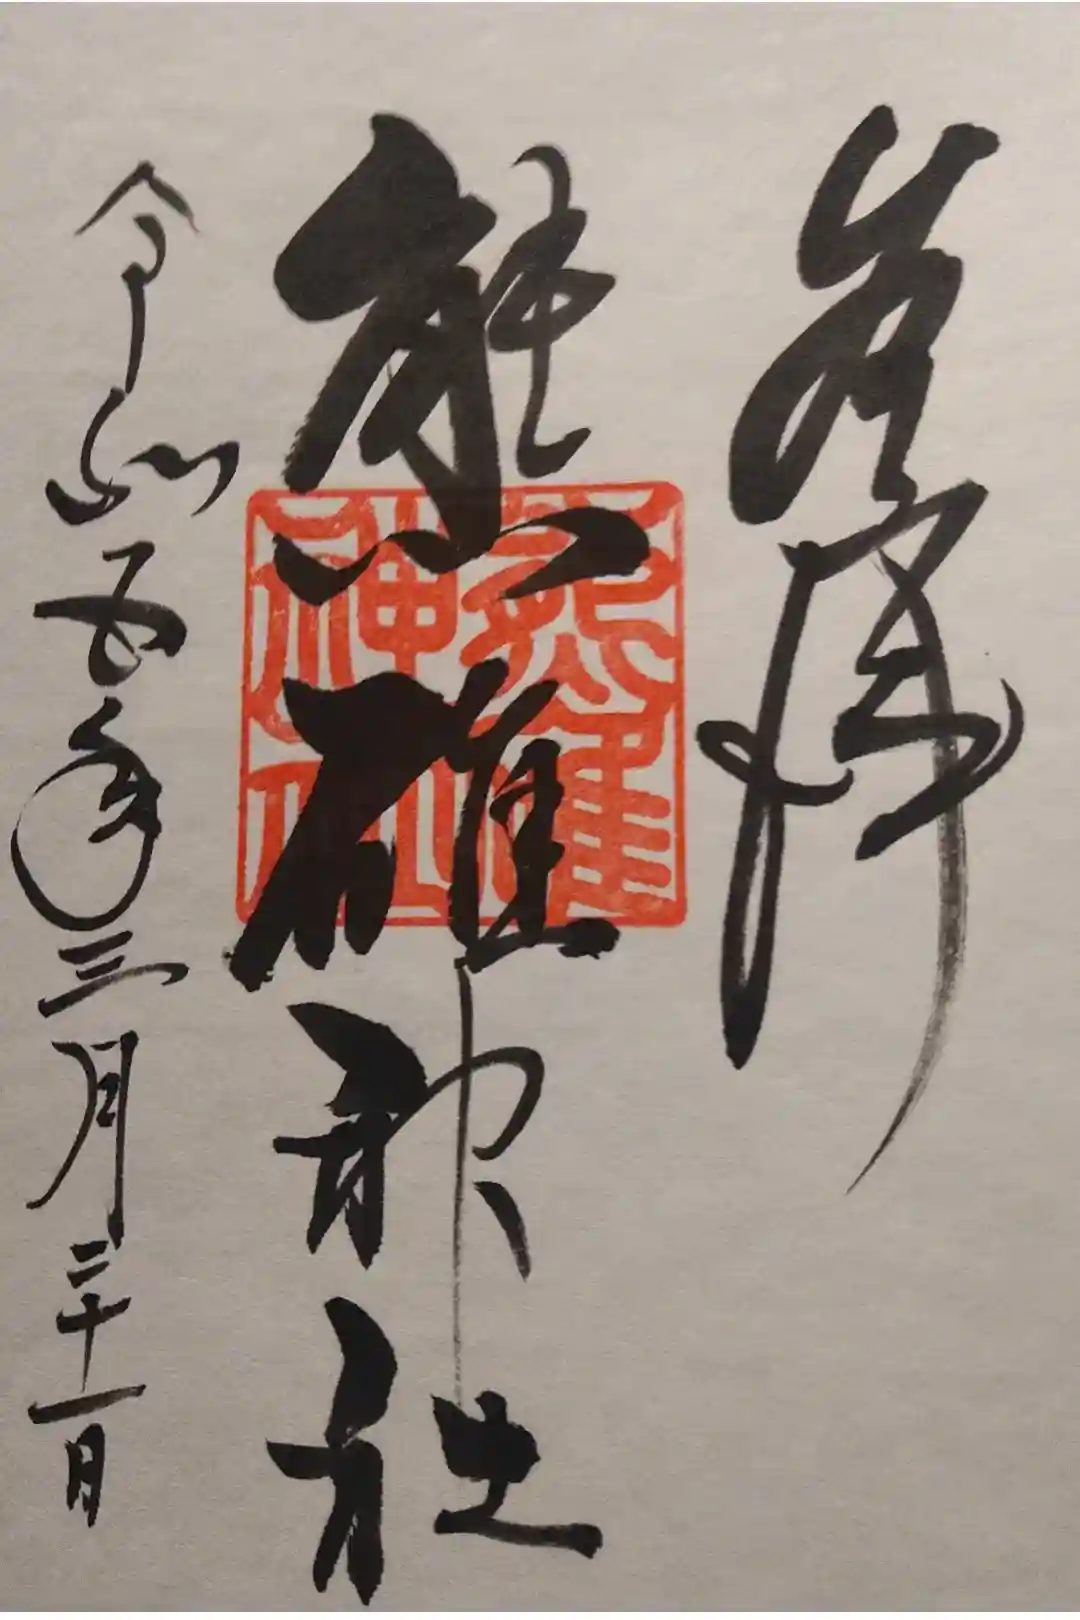 奉拝
熊碓神社
令和五年三月二十一日
熊碓
神社